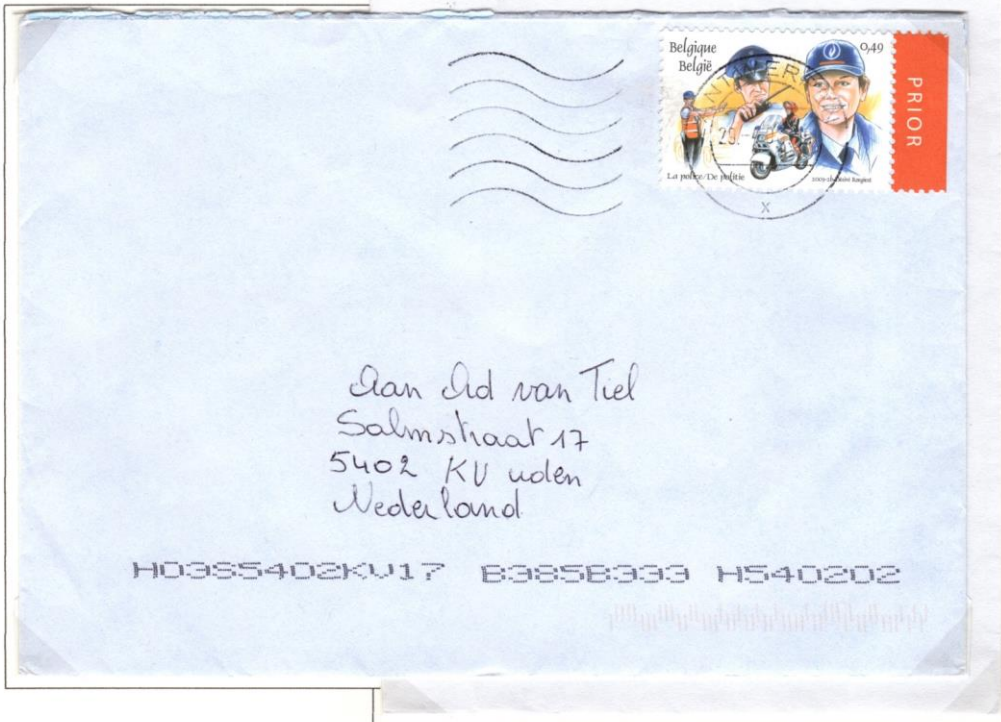 Belgique
België
0,49
PRIOR
La police/De politie
Aan Ad van Tiel
Salmstraat 17
5402 KV uden
Nederland
H0385402KV17 B385B333 H540202